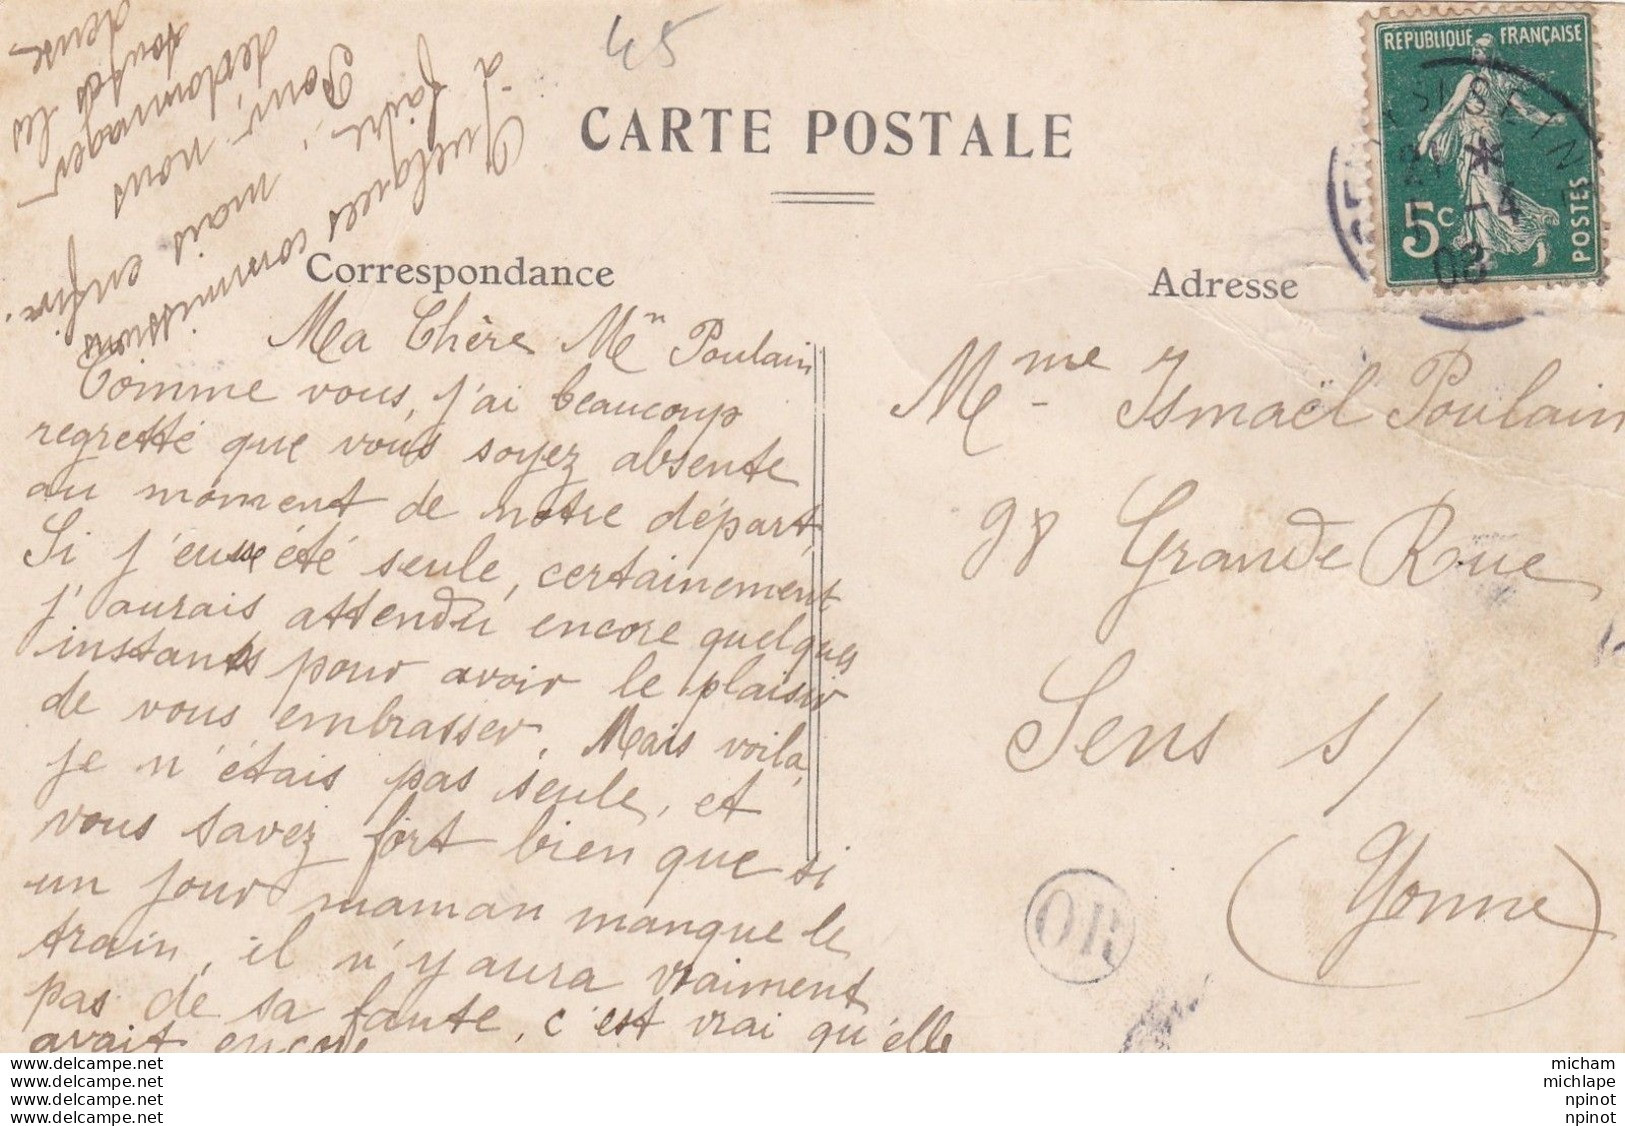 45
CARTE POSTALE
RÉPUBLIQUE FRANÇAISE
5c
POSTES
S/SEINE
21 *
-4
08
Correspondance
Adresse
Ma Chère Mn Poulain
Comme vous, j'ai beaucoup
regretté que vous soyez absente
au moment de notre départ,
Si j'eusse été seule, certainement
j'aurais attendu encore quelques
instants pour avoir le plaisir
de vous embrasser. Mais voilà,
je n'étais pas seule, et
vous savez fort bien que si
un jour maman manque le
train, il n'y aura vraiment
pas de sa faute, c'est vrai qu'elle
avait encore
Quelques commissions
à faire, mais enfin.
Pour nous
dedommager
toutes les
deux
Mme Ismaël Poulain
98 Grande Rue
Sens s/
(Yonne)
OR
www.delcampe.net
www.delcampe.net
www.delcampe.net
www.delcampe.net
micham
michlape
npinot
npinot